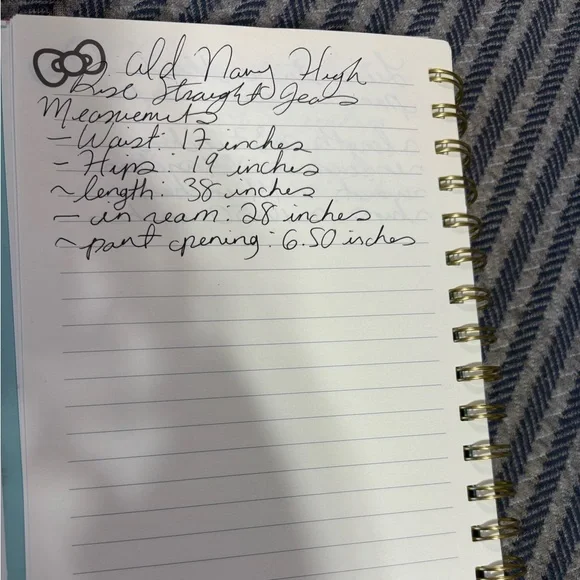 Old Navy High
Rise Straight Jeans
Measurements
- Waist: 17 inches
- Hips: 19 inches
~ length: 38 inches
- in seam: 28 inches
~ pant opening: 6.50 inches